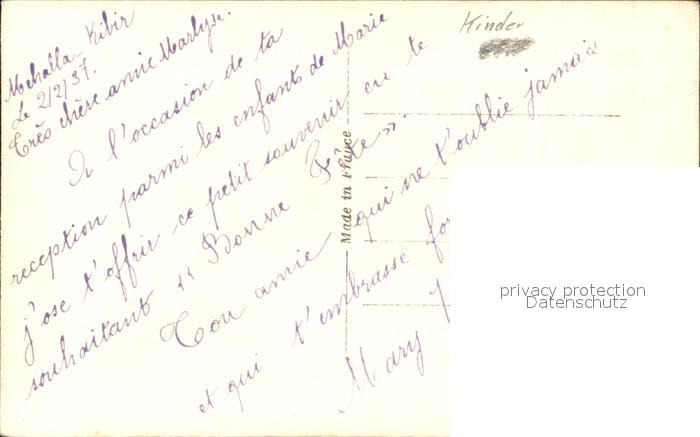 Mehalla-Kibir
Le 2/2/37.
Très chère amie Marlyse.
A l'occasion de ta
reception parmi les enfants de Marie
j'ose t'offrir ce petit souvenir en te
souhaitant " Bonne Fête »
Ton amie qui ne t'oublie jamais
et qui t'embrasse for
Mary
Kinder
Made in France
privacy protection
Datenschutz